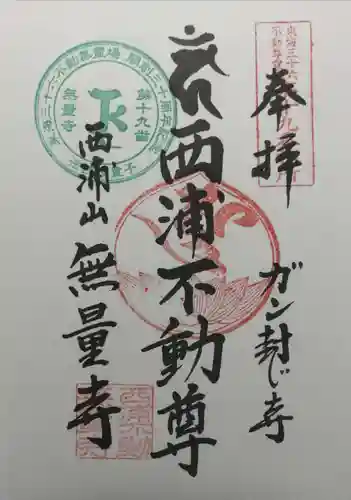 奉拝
ガン封じ寺
西浦不動尊
西浦山
無量寺
東海三十六不動尊霊場
開創三十周年記念
第十九番
無量寺